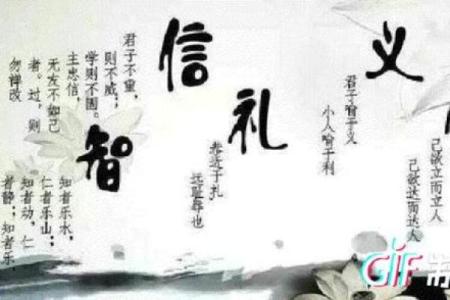 己欲立而立人
己欲达而达人
义
君子喻于义
小人喻于利
礼
近于礼
远耻辱也
信
君子不重，
则不威；
学则不固。
主忠信，
无友不如己
者。过，则
勿惮改
智
知者乐水，
仁者乐山；
知者动，仁
者静；知者乐，
GIF制